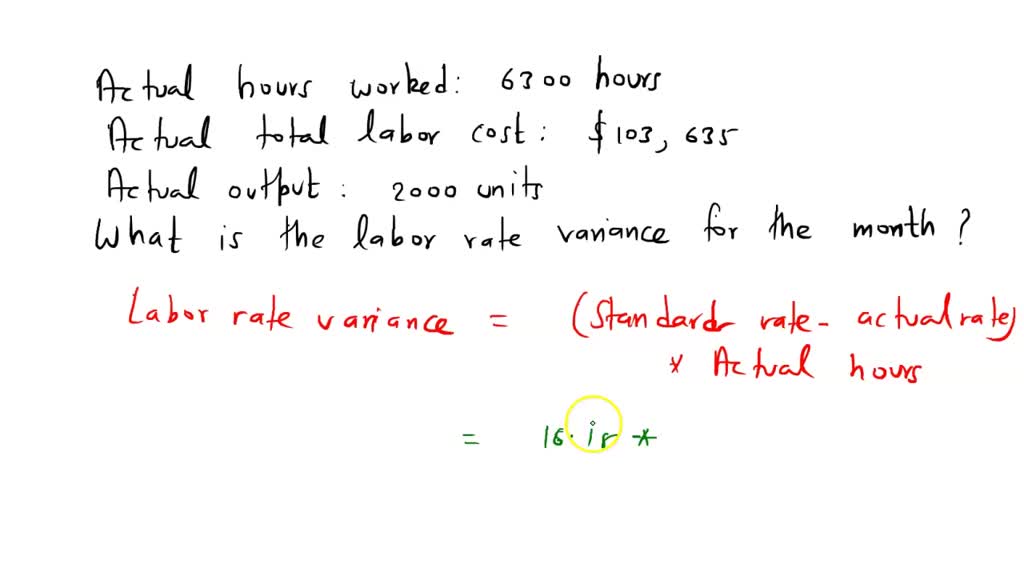 Actual hours worked: 6300 hours
Actual total labor cost: $103,635
Actual output: 2000 units
What is the labor rate variance for the month?
Labor rate variance = (Standard rate - actual rate)
* Actual hours
= *